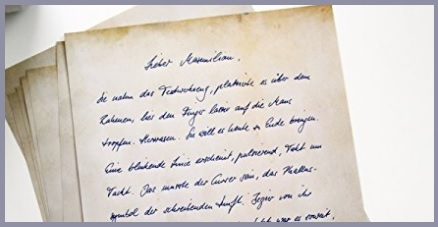 Lieber Maximilian,
Sie nahm das platzierte es über dem
Rahmen, lies den Finger latenr auf die Maus
tropfen. Heraussen. Sie will es heute zu Ende bringen.
Eine blinkende Linie erscheint, pulsierend, Takt um
Takt. Das musste der Cursor sein, das Phallus-
symbol der schreibenden Zunft. Ziper von ihr
war es soweit,